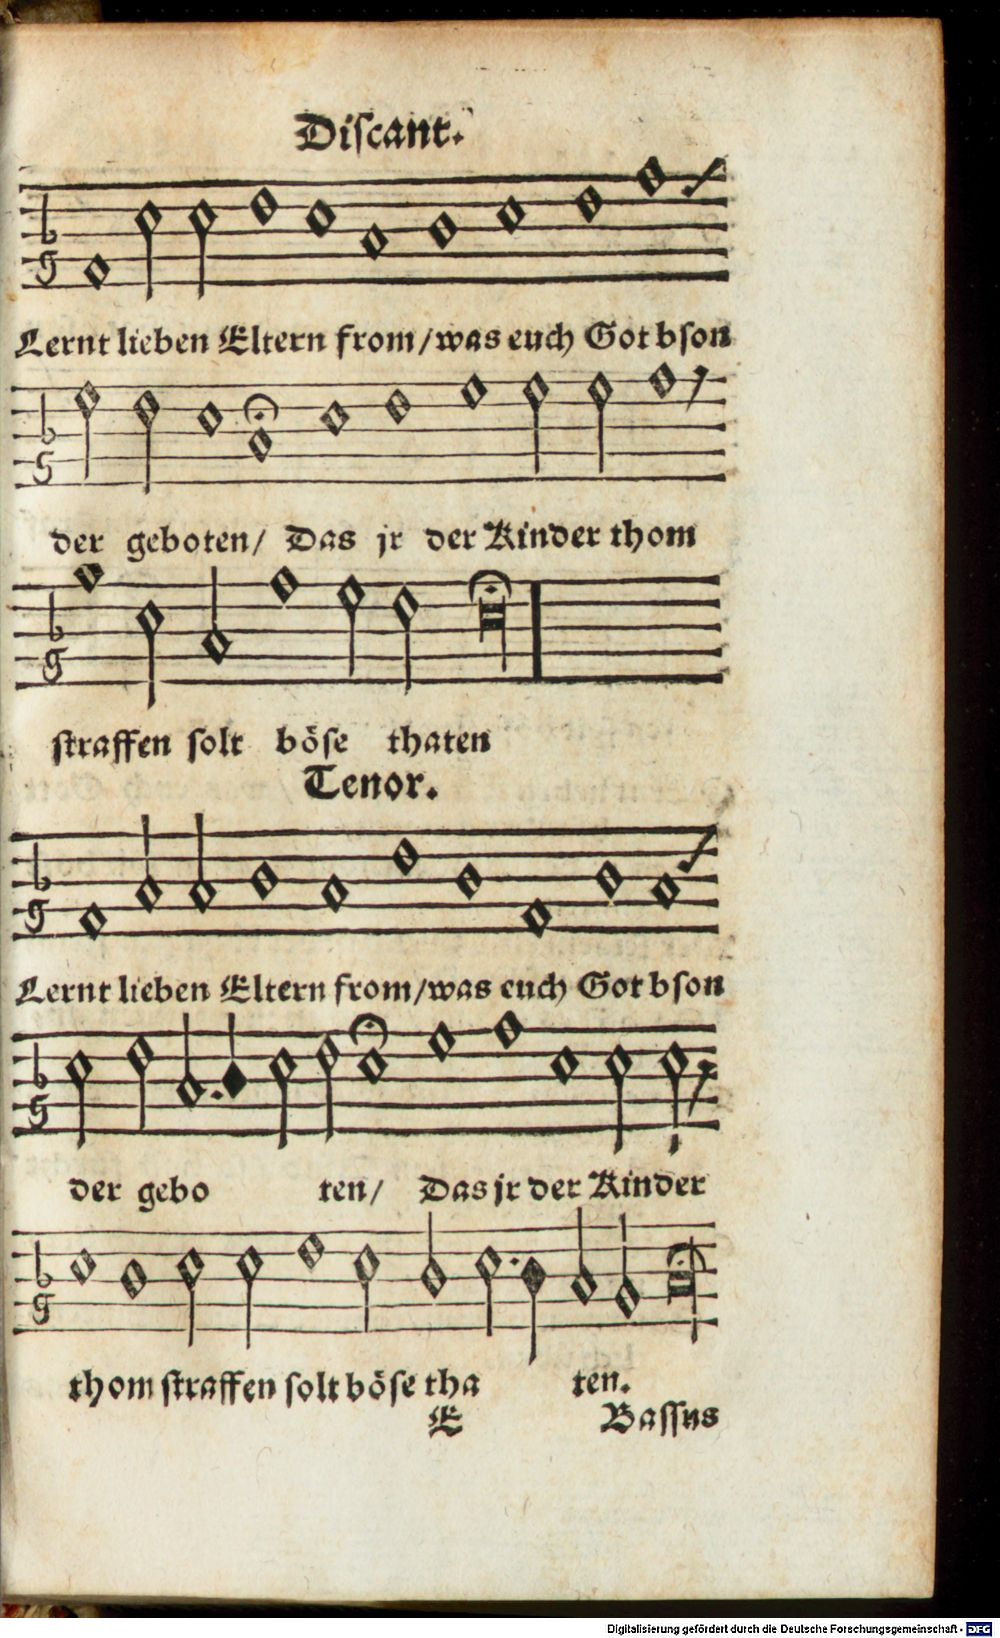 Discant.
Lernt lieben Eltern from/was euch Got bſon
der geboten/ Das jr der Kinder thom
ſtraffen ſolt böſe thaten
Tenor.
Lernt lieben Eltern from/was euch Got bſon
der gebo ten/ Das jr der Kinder
thom ſtraffen ſolt böſe tha ten.
E Baſſus
Digitalisierung gefördert durch die Deutsche Forschungsgemeinschaft - DFG